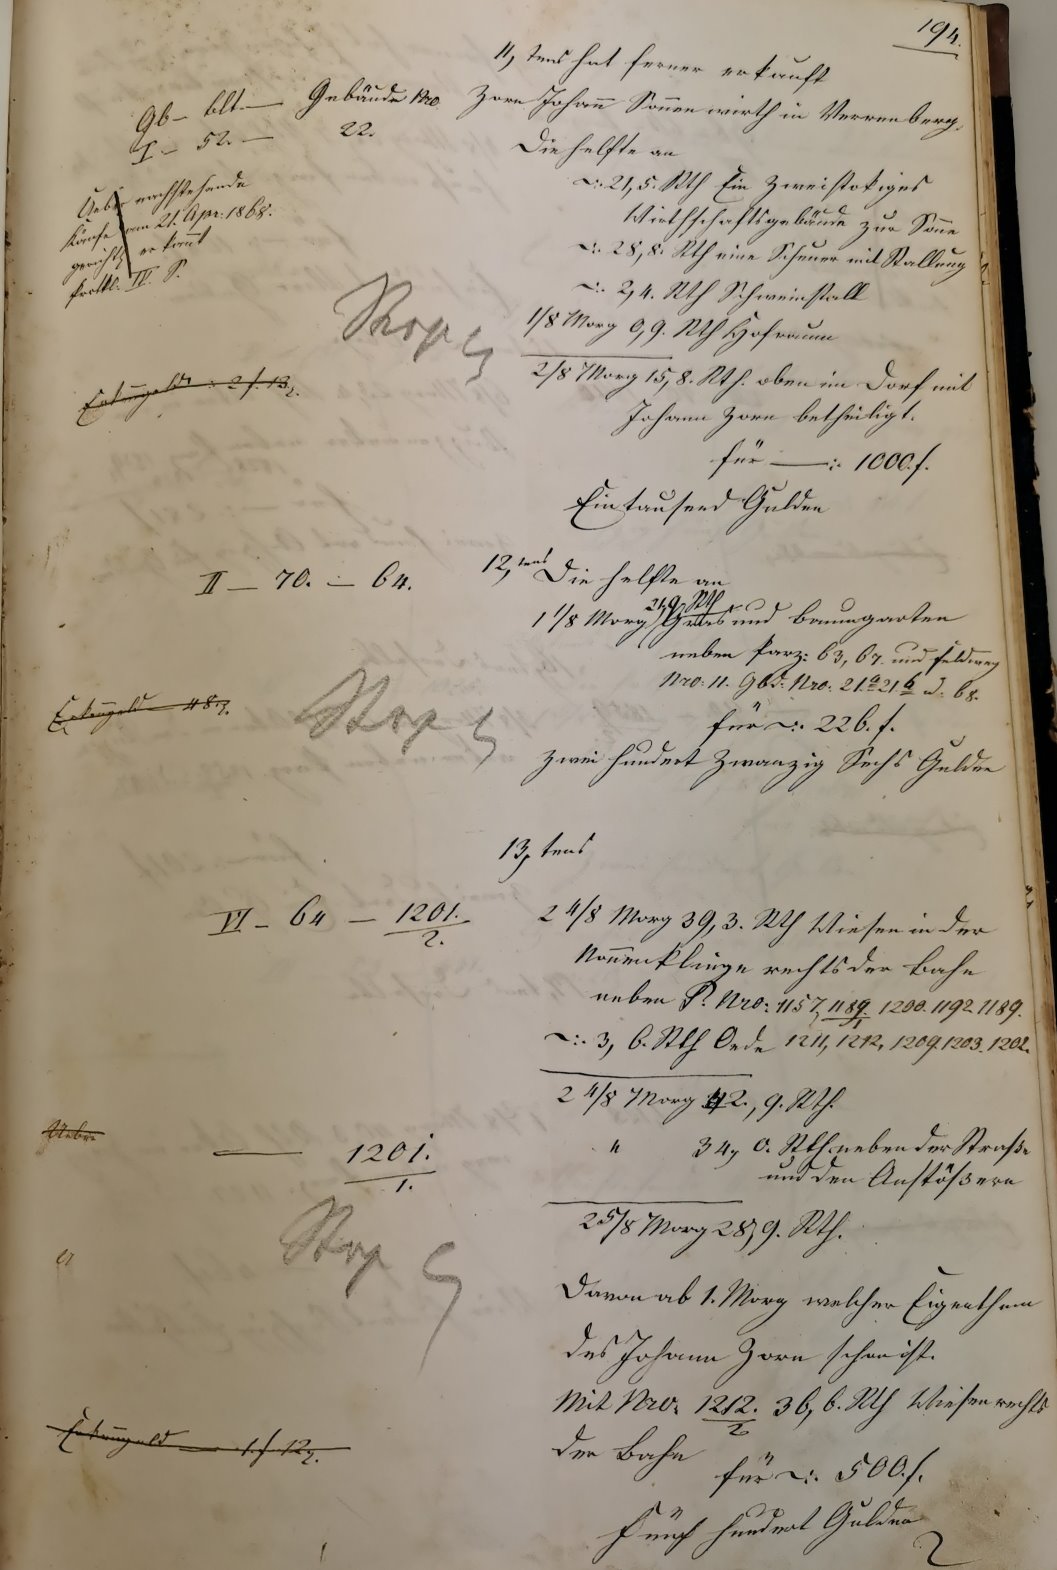 194.
11, tens hat ferner erkauft
Gb- blt. — Gebäude Nro.
I — 52. — 22.
Zorn Johann Sonnenwirth in Verrenberg,
Die helfte an
Ueber nachstehende
Käufe am 21. Apr: 1868.
gerichtl. erkannt
Protkl. IV. S.
-:. 21,5. Rth Ein Zweistokiges
Wirthschaftsgebäude zur Sonne
-:. 28,8. Rth eine Scheuer mit Stallung
-:. 2,4. Rth Schweinstall
1/8 Morg 0,9. Rth Hofraum
2/8 Morg 15,8. Rth. oben im Dorf mit
Johann Zorn betheiligt.
für —:. 1000.f.
Ein tausend Gulden
II — 70. — 64.
12, tens Die helfte an
24,9. Rth
1 1/8 Morg Gras und Baumgarten
neben Parz: 63, 67. und Feldweg
Nro: 11. Gbd: Nro: 21.a 21 b
für -:. 226. f.
Zwei hundert Zwanzig Sechs Gulden
13, tens
VI — 64 — 1201./2.
2 4/8 Morg 39,3. Rth Wiesen in der
Nonnenklinge rechts der Bahn
neben P. Nro: 1157, 1189/1 1200. 1192. 1189.
-:. 3, 6. Rth Oede 1211, 1212, 1209. 1203. 1202.
2 4/8 Morg 42., 9. Rth.
Ueber
— 1201./1.
" 34, 0. Rth. neben der Straße
und den Anstößern
2 5/8 Morg 28,9. Rth.
Davon ab 1. Morg welcher Eigenthum
des Johann Zorn schon ist.
Mit Nro: 1212./2 36, 6. Rth Wiesen rechts
der Bahn
1.f 12
für -:. 500.f.
Fünf hundert Gulden